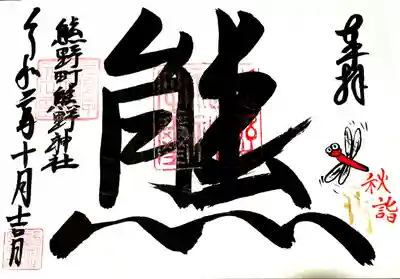 奉拝
秋詣
熊
熊野町熊野神社
令和二年十月十三日